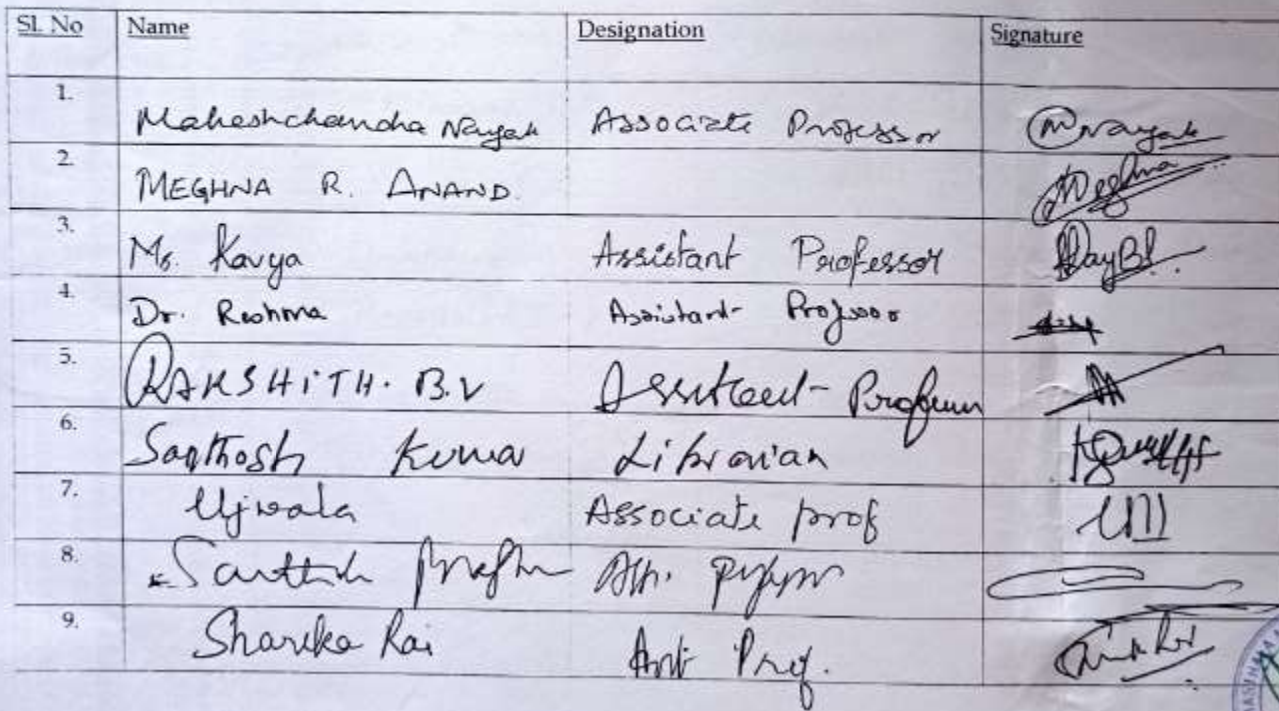 SL No Name Designation Signature
1. Maheshchandra Nayak Associate Professor MNayak
2. MEGHNA R. ANAND. Meghna
3. Ms. Kavya Assistant Professor
4. Dr. Reshma Assistant Professor
5. RAKSHITH. B.V Assistant Professor
6. Santhosh Kumar Librarian
7. Ujwala Associate prof
8. Prabhu
9. Sharika Rai Asst Prof.